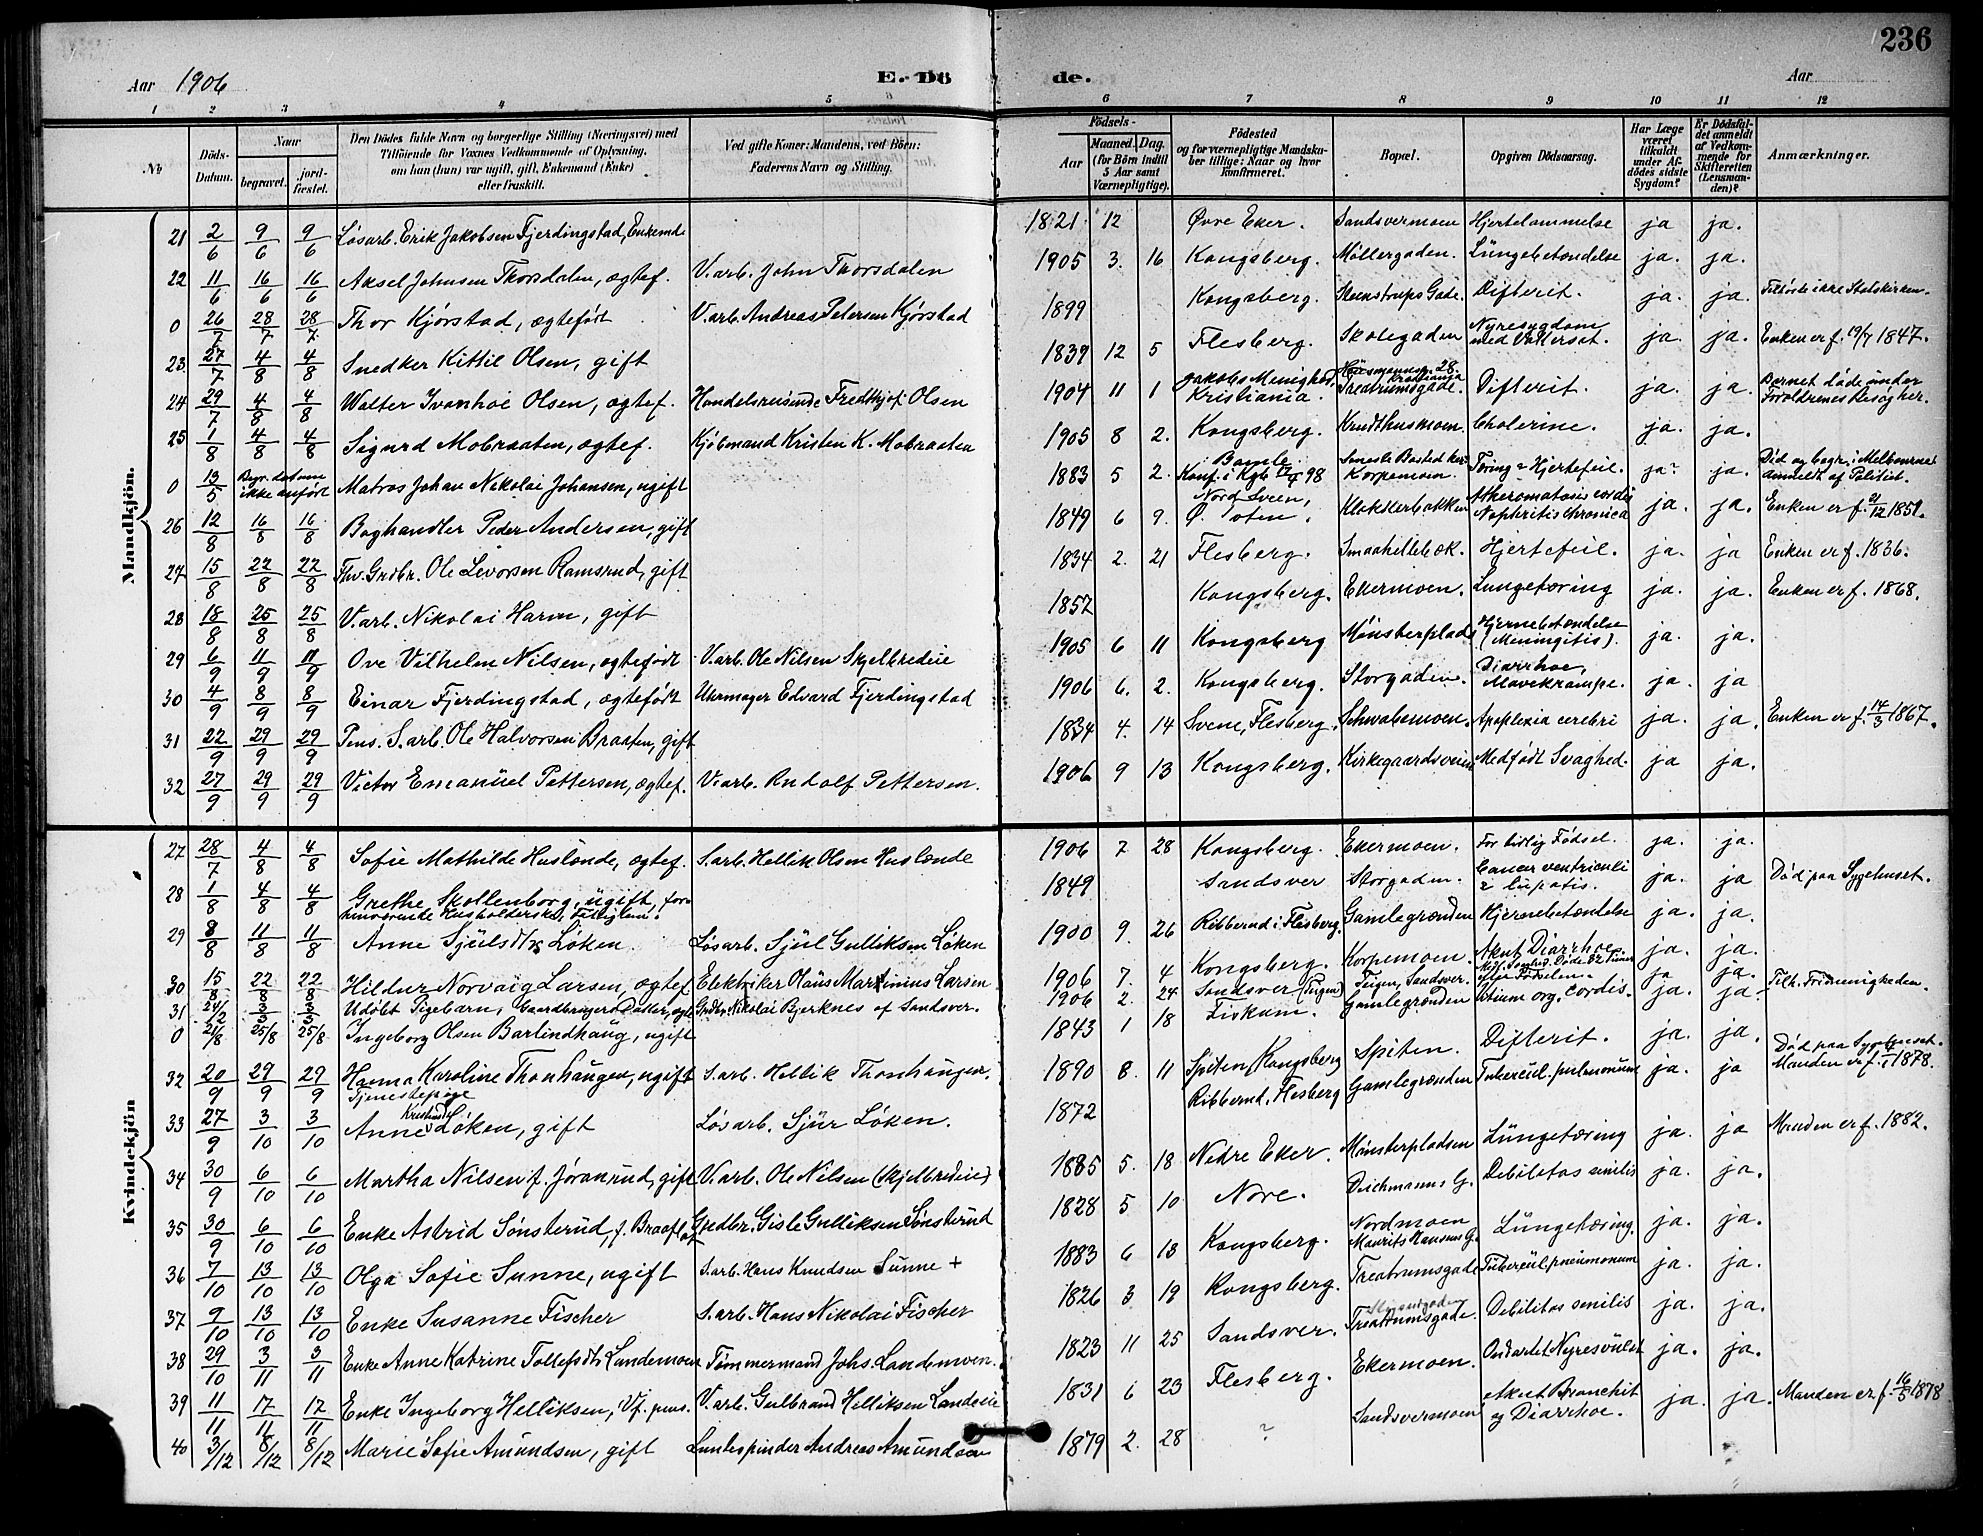 236
Aar 1906 E. Dö de. Aar
1 2 3 4 5 6 7 8 9 10 11 12
No Döds-Datum. Naar begravet. jordfæstet. Den Dödes fulde Navn og borgerlige Stilling (Næringsvei) med Tilföiende for Voxnes Vedkommende af Oplysning, om han (hun) var ugift, gift, Enkemand (Enke) eller fraskilt. Ved gifte Koner: Mandens, ved Börn: Faderens Navn og Stilling. Födsels- Aar Maaned. Dag. (for Börn indtil 5 Aar samt Værnepligtige). Födested og for værnepligtige Mandskaber tillige: Naar og hvor konfirmeret. Bopæl. Opgiven Dödsaarsag. Har Læge været tilkaldt under Afdödes sidste Sygdom? Er Dödsfaldet anmeldt af Vedkommende for Skifteretten (Lensmanden)? Anmærkninger.
Mandkjön.
21 2/6 9/6 9/6 Løsarb. Erik Jakobsen Fjerdingstad, Enkemd 1821 12 Øvre Eker. Sandsvermoen Hjertelammelse ja ja.
22 11/6 16/6 16/6 Aksel Johnsen Thorsdalen, ægtef. V. arb. John Thorsdalen 1905 3. 16 Kongsberg. Møllergaden. Lungebetændelse ja. ja.
0 26/7 28/7 28/7 Thor Kjørstad, ægtefødt V. arb. Andreas Petersen Kjørstad 1899 Kongsberg. Steenstrups Gade. Difterit. ja. ja. Tilhørte ikke Statskirken.
23. 27/7 4/8 4/8 Snedker Kittil Olsen, gift 1839 12 5 Flesberg. Skolegaden Nyresygdom med Vattersot. ja. ja. Enken er f. 19/7 1847.
24 29/7 4/8 4/8 Walter Ivanhoe Olsen, ægtef. Handelsreisende Fredthjof Olsen 1904 11 1 Jakobs Menighed, Kristiania. Kristiania Treatrumsgade. Difterit. ja. ja. Barnet døde under Forældrenes Besøg her.
25 1/8 4/8 4/8 Sigurd Mobraaten, ægtef. Kjøbmand Kristen K. Mobraaten 1905 8 2. Kongsberg. Krudthusmoen. Cholerine. ja. ja.
0 13/5 Begr. datum ikke anført Matros Johan Nikolai Johansen, ugift 1883 5 2. Bamle Konf. i Kgb. 98 Korpemoen. Tæring & Hjertefeil. ja. ja. Død og begr. i Melbourne Anmeldt af Politiet.
26 12/8 16/8 16/8 Boghandler Peder Andersen, gift 1849 6 9. Ø. Toten. Klokkerbakken Atheromatosis cordis Nephritis chronica ja. ja. Enken er f. 1851.
27 15/8 22/8 22/8 Fhv. Grdbr. Ole Livorsen Ramsrud, gift 1834 2. 21 Flesberg. Smaahellebæk. Hjertefeil. ja. ja Enken er f. 1836.
28 18/8 25/8 25/8 V. arb. Nikolai Harm, gift 1857 Kongsberg. Ekermoen. Lungetæring ja. ja. Enken er f. 1868.
29 6/9 11/9 11/9 Ove Vilhelm Nilsen, ægtefødt V. arb. Ole Nilsen Skjelbredeie 1905 6 11 Kongsberg Mønsterplads Hjernebetændelse (Meningitis). ja. ja.
30 4/9 8/9 8/9 Einar Fjerdingstad, ægtefødt Uhrmager Edvard Fjerdingstad 1906 6. 2. Kongsberg. Storgaden. Diarrhoe, Mavekrampe. ja. ja
31 22/9 29/9 29/9 Pens. S. arb. Ole Halvorsen Braaten, gift 1834 4. 14 Svene, Flesberg. Schwabemoen. Apoplexia cerebri ja. ja. Enken er f. 14/3 1867.
32 27/9 29/9 29/9 Victor Emanuel Pettersen, ægtef. V. arb. Rudolf Pettersen. 1906 9 13 Kongsberg. Kirkegaardsveien Medfødt Svaghed. ja ja.
Kvindekjön
27 28/7 4/8 4/8 Sofie Mathilde Huslænde, ægtef. S. arb. Hellik Olsen Huslænde 1906 7 28 Kongsberg. Ekermoen. For tidlig Fødsel. ja. ja.
28 1/8 4/8 4/8 Grethe Skollenborg, ugift, forhenværende Husholderske, 1849 Sandsver Storgaden. Cancer ventriculi & hepatis. ja. ja Død paa Sygehuset.
29 8/8 11/8 11/8 Anne Sjulsdtr Løken. Løsarb. Sjul Gulliksen Løken 1900 9. 26 Ribberud i Flesberg. Gamlegrænden Hjernebetændelse ja. ja.
30 15/8 22/8 22/8 Hildur Norvaig Larsen, ægtef. Elektriker Olaus Martinius Larsen 1906 7. 4 Kongsberg. Korpemoen. Akut Diarrhoe ja. ja.
31 24/2 3/3 3/3 Udøbt Pigebarn, Gaardbrugers Datter, ægt. Grdbr. Nikolai Bjerknes af Sandsver. 1906 2. 24 Sandsver (Teigen) Teigen, Sandsver. efter Fødselen. ja ja. Tilh. Frimenigheden.
0 21/8 25/8 25/8 Ingeborg Olsen Barlindhaug, ugift 1843 1 18 Fiskum. Gamlegrænden Vitium org. cordis. ja. ja.
32 20/9 29/9 29/9 Hanna Karoline Thonhaugen, ugift Tjenestepige S. arb. Hellik Thonhaugen. 1890 8. 11 Spiten (Kongsberg) Spiten. Difterit. ja. ja. Død paa Sygehuset.
33 27/9 3/10 3/10 Anne Løken, gift Løsarb. Sjur Løken. 1872 Ribberud, Flesberg Gamlegrænden Tubercul. pulmonum ja. ja Manden er f. 1878.
34 30/9 6/10 6/10 Martha Nilsen f. Joransrud, gift V. arb. Ole Nilsen (Skjelbredeie) 1885 5. 18 Nedre Eker. Mønsterpladsen Lungetæring ja. ja Manden er f. 1882.
35 30/9 6/10 6/10 Enke Astrid Sønsterud, f. Braafla Grdbr. Gisle Gulliksen Sønsterud 1828 5 10 Nore. Deichmans G. Debilitas senilis ja. ja.
36 7/10 13/10 13/10 Olga Sofie Sunne, ugift S. arb. Hans Knudsen Sunne + 1883 6 13 Kongsberg. Nordmoen Maurits Hansens G. Lungetæring. ja. ja.
37 9/10 13/10 13/10 Enke Susanne Fischer S. arb. Hans Nikolai Fischer 1826 3 19 Kongsberg. Treatrumsgade Tubercul. pneumonum ja. ja.
38 29/10 3/11 3/11 Enke Anne Katrine Tollefsdtr Lundemoen Tømmermand Johs. Landemoen. 1823 11 25 Sandsver. Treatrumsgade. Debilitas senilis ja. ja.
39 11/11 17/11 17/11 Enke Ingeborg Helliksen, Vf. pens. V. arb. Gulbrand Helliksen Landeeie 1831 6 23 Flesberg. Ekermoen. Ondartet Nyresvulst ja. ja.
40 3/12 8/12 8/12 Marie Sofie Amundsen, gift Luntespinder Andreas Amundsen 1879 2. 28 ? Sandsvermoen Akut Bronchit og Diarrhoe. ja. ja. Manden er f. 16/5 1878